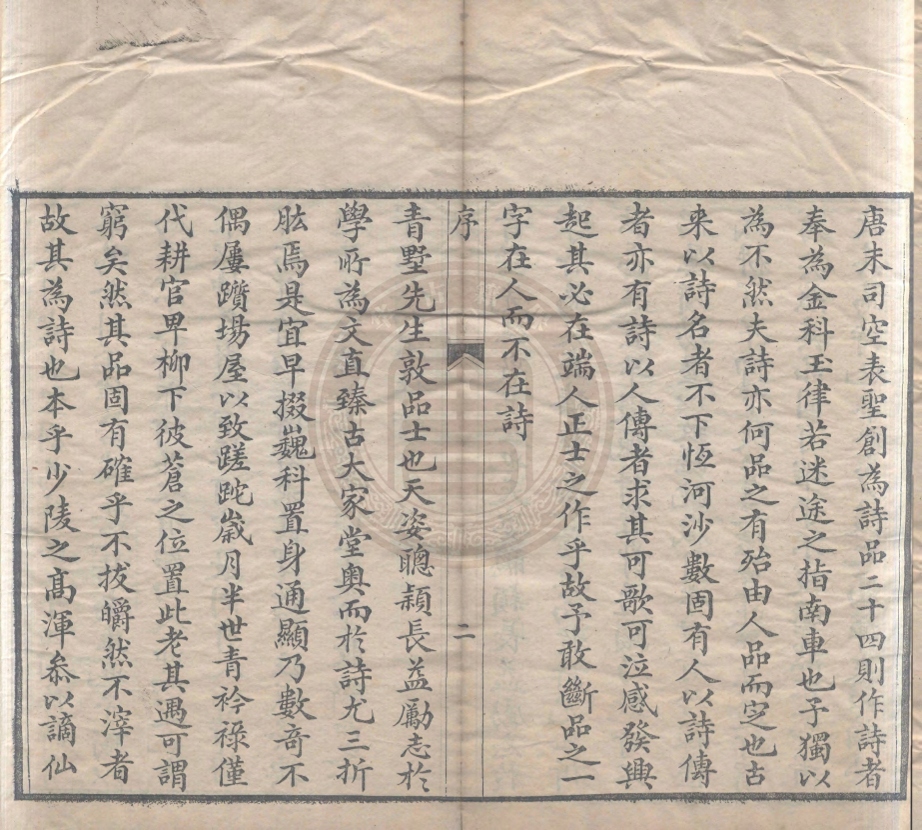 唐末司空表聖創為詩品二十四則作詩者
奉為金科玉律若迷途之指南車也予獨以
為不然夫詩亦何品之有殆由人品而定也古
来以詩名者不下恆河沙數固有人以詩傳
者亦有詩以人傳者求其可歌可泣感發興
起其必在端人正士之作乎故予敢斷品之一
字在人而不在詩
序 二
青墅先生敦品士也天姿聰穎長益勵志於
學所為文直臻古大家堂奧而於詩尤三折
肱焉是宜早掇巍科置身通顯乃數奇不
偶屢躓場屋以致蹉跎歲月半世青衿祿僅
代耕官卑柳下彼蒼之位置此老其遇可謂
窮矣然其品固有確乎不拔皭然不滓者
故其為詩也本乎少陵之高渾叅以謫仙